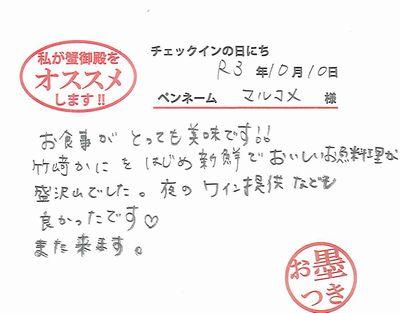 私が蟹御殿を
オススメ
します!!
チェックインの日にち
R3 年 10 月 10 日
ペンネーム マルコメ 様
お食事が とっても美味です!!
竹崎かにをはじめ新鮮でおいしいお魚料理が
盛沢山でした。夜のワイン提供なども
良かったです♡
また来ます。
お墨
つき